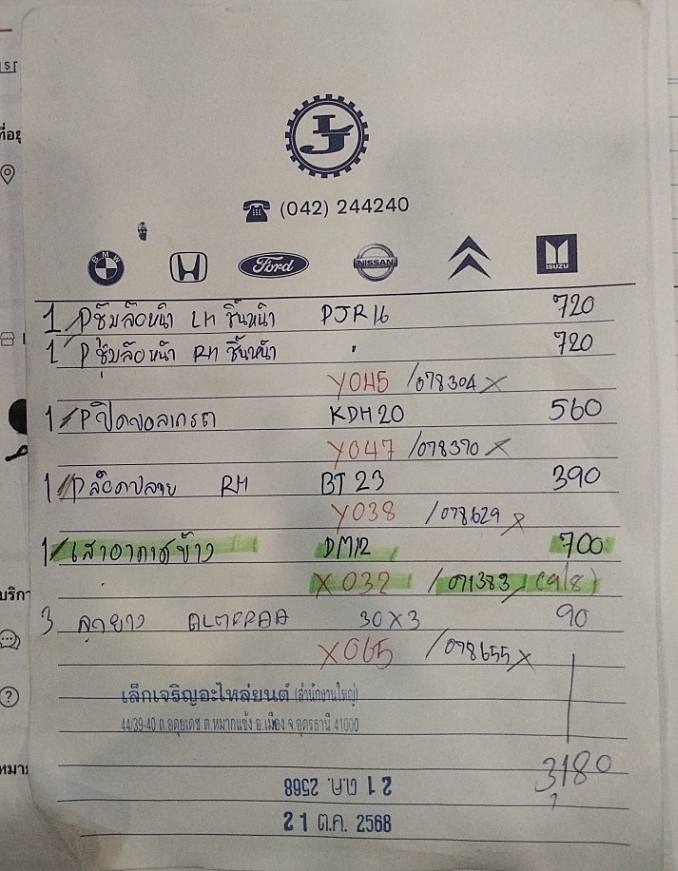 LJ
☎ (042) 244240
BMW H Ford NISSAN ISUZU
1 Pซุ้มล้อหน้า LH ชิ้นหน้า PJR16 720
1 Pซุ้มล้อหน้า RH ชิ้นหน้า " 720
Y045 /078304 x
1 Pปิด KDH20 560
Y047 /078370 x
1 P RH BT23 390
Y038 /078629 x
1 เสาอากาศข้าง DM12 700
X032 /071383 (9/8)
3 ลูกยาง 30x3 90
X065 /078655 x
เล็กเจริญอะไหล่ยนต์ (สำนักงานใหญ่)
44/39-40 ถ.อดุยเดช ต.หมากแข้ง อ.เมือง จ.อุดรธานี 41000
3180
21 ต.ค. 2568
21 ต.ค. 2568